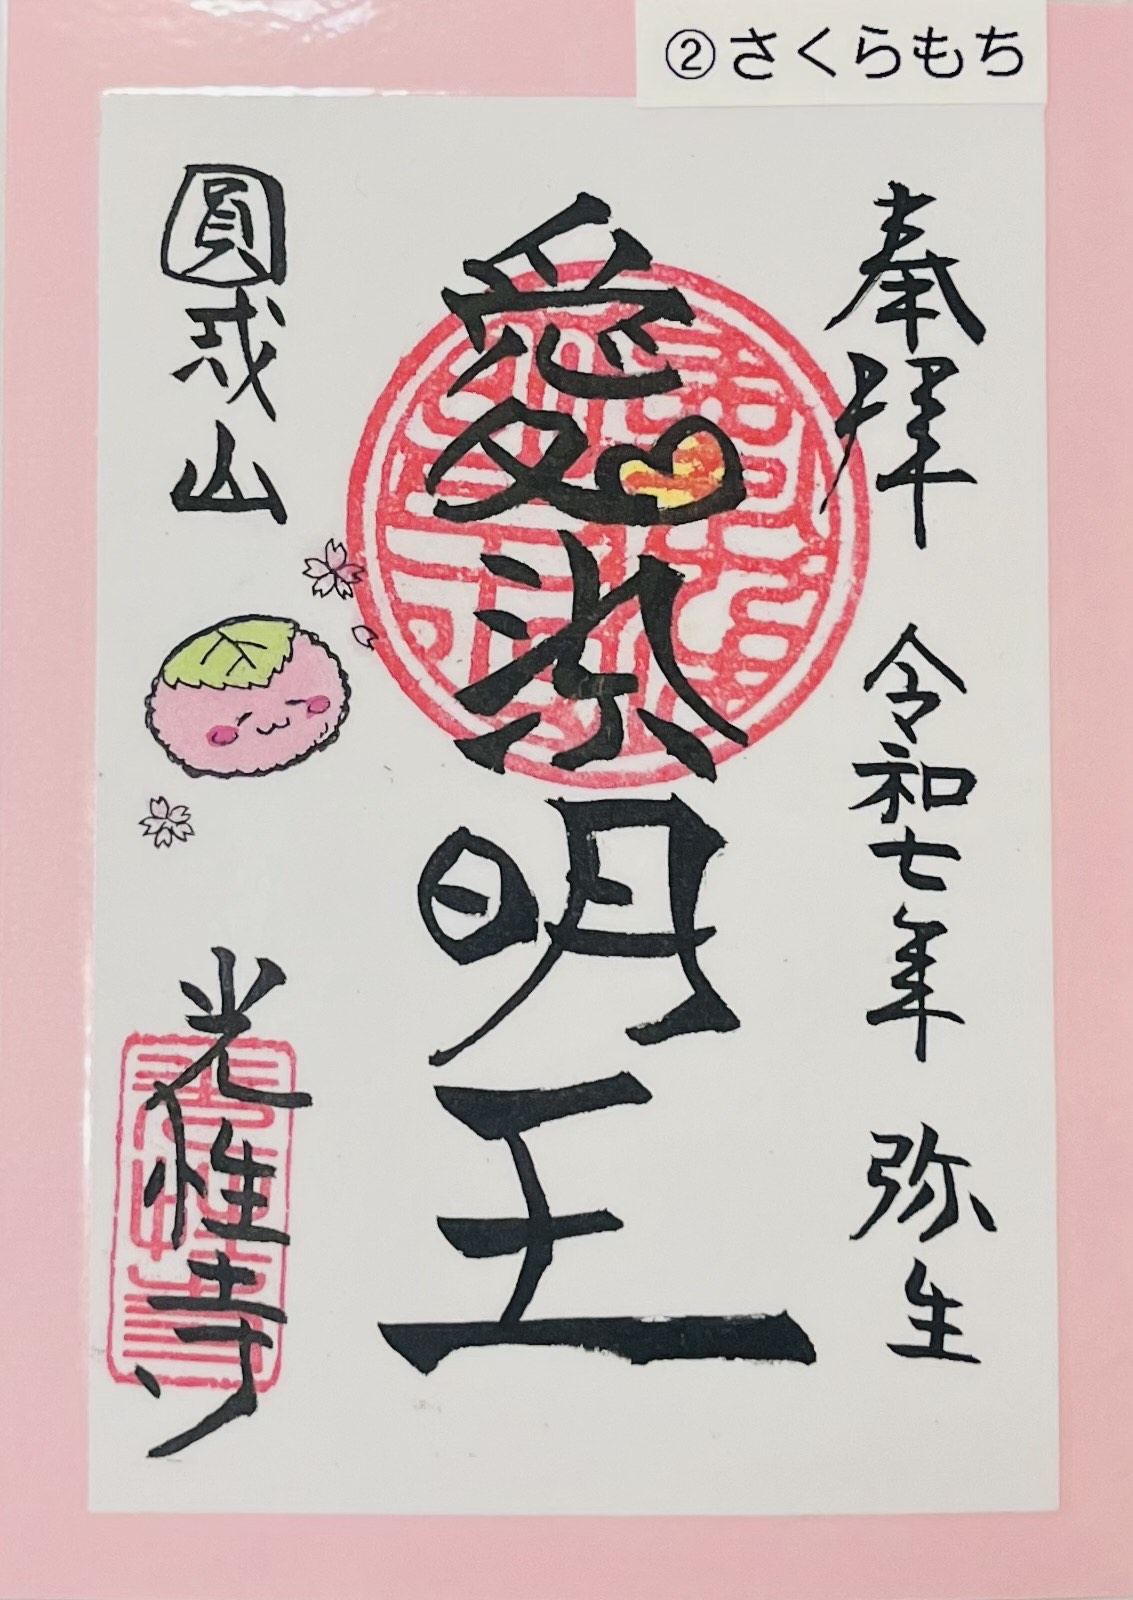 ②さくらもち
奉拝 令和七年 弥生
愛染明王
圓戒山
光性寺